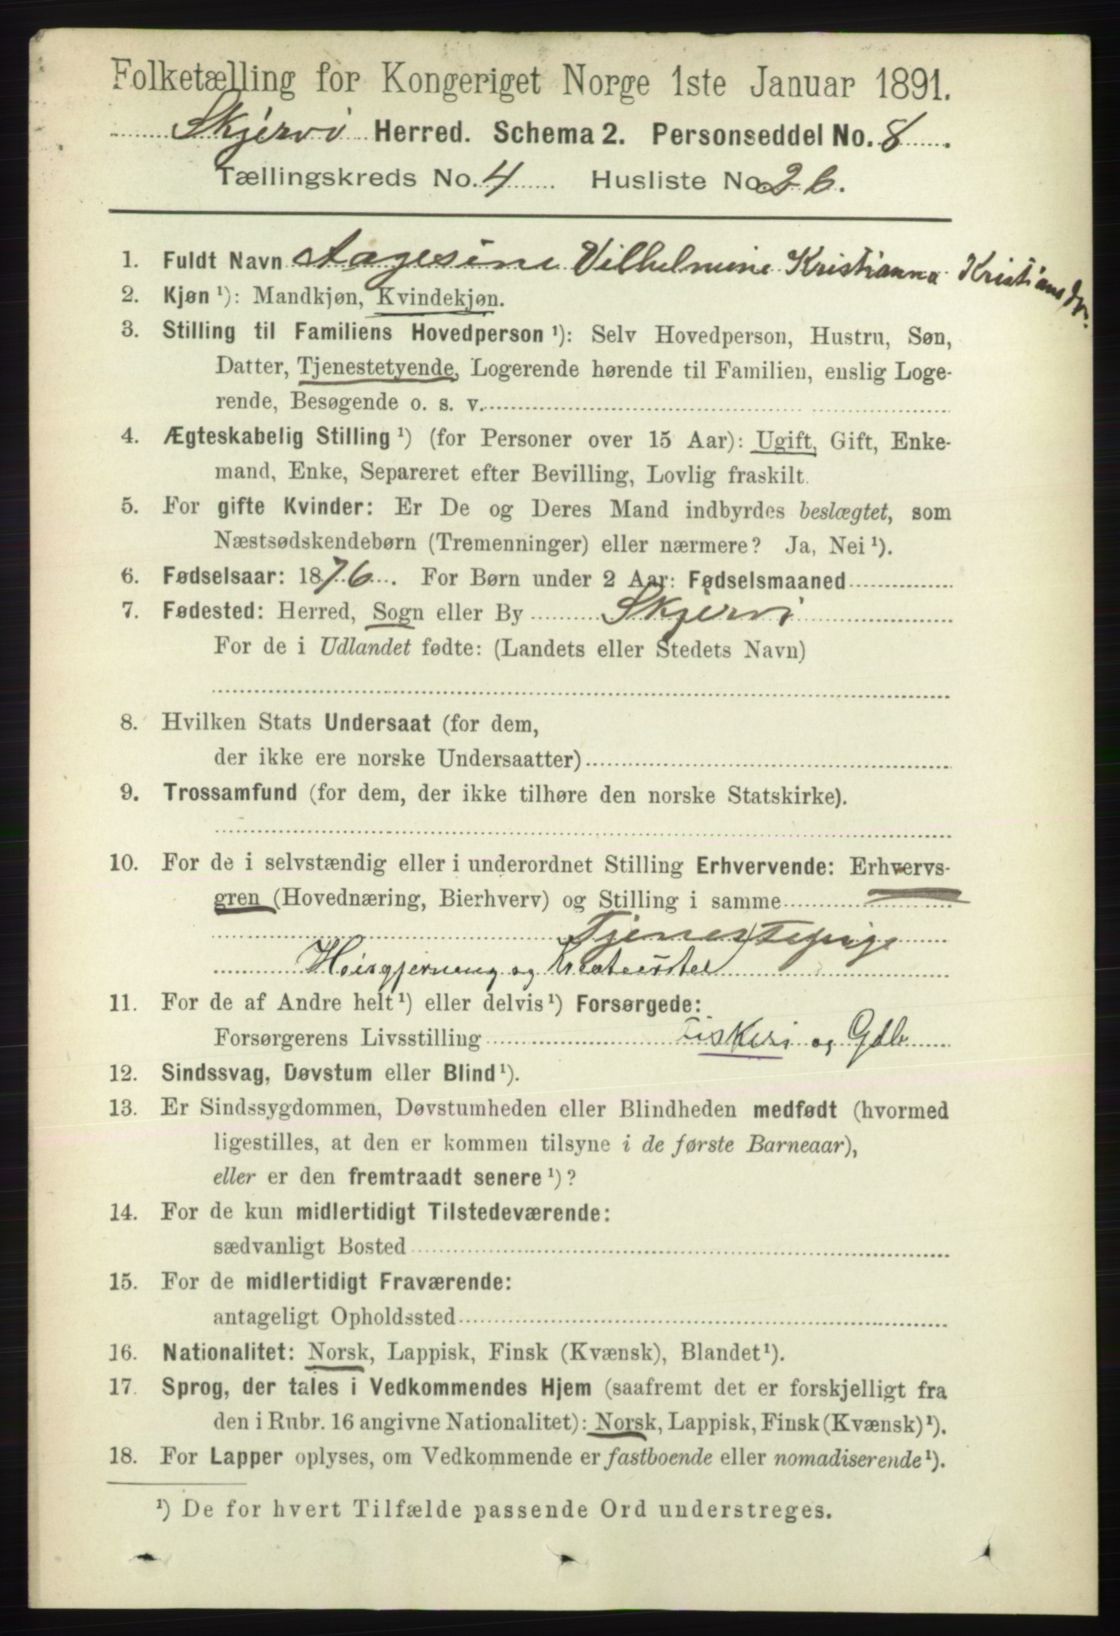 Folketælling for Kongeriget Norge 1ste Januar 1891.
Skjervö Herred. Schema 2. Personseddel No. 8.
Tællingskreds No. 4 Husliste No. 26.
1. Fuldt Navn Aagesine Vilhelmine Kristianna Kristiansdr.
2. Kjøn ¹): Mandkjøn, Kvindekjøn.
3. Stilling til Familiens Hovedperson ¹): Selv Hovedperson, Hustru, Søn,
Datter, Tjenestetyende, Logerende hørende til Familien, enslig Loge-
rende, Besøgende o. s. v.
4. Ægteskabelig Stilling ¹) (for Personer over 15 Aar): Ugift, Gift, Enke-
mand, Enke, Separeret efter Bevilling, Lovlig fraskilt.
5. For gifte Kvinder: Er De og Deres Mand indbyrdes beslægtet, som
Næstsødskendebørn (Tremenninger) eller nærmere? Ja, Nei ¹).
6. Fødselsaar: 1876. For Børn under 2 Aar: Fødselsmaaned
7. Fødested: Herred, Sogn eller By Skjervö
For de i Udlandet fødte: (Landets eller Stedets Navn)
8. Hvilken Stats Undersaat (for dem,
der ikke ere norske Undersaatter)
9. Trossamfund (for dem, der ikke tilhøre den norske Statskirke).
10. For de i selvstændig eller i underordnet Stilling Erhvervende: Erhvervs-
gren (Hovednæring, Bierhverv) og Stilling i samme
Tjenestepige
og
11. For de af Andre helt ¹) eller delvis ¹) Forsørgede:
Forsørgerens Livsstilling Fiskeri og Gdb
12. Sindssvag, Døvstum eller Blind ¹).
13. Er Sindssygdommen, Døvstumheden eller Blindheden medfødt (hvormed
ligestilles, at den er kommen tilsyne i de første Barneaar),
eller er den fremtraadt senere ¹)?
14. For de kun midlertidigt Tilstedeværende:
sædvanligt Bosted
15. For de midlertidigt Fraværende:
antageligt Opholdssted
16. Nationalitet: Norsk, Lappisk, Finsk (Kvænsk), Blandet ¹).
17. Sprog, der tales i Vedkommendes Hjem (saafremt det er forskjelligt fra
den i Rubr. 16 angivne Nationalitet): Norsk, Lappisk, Finsk (Kvænsk) ¹).
18. For Lapper oplyses, om Vedkommende er fastboende eller nomadiserende ¹).
¹) De for hvert Tilfælde passende Ord understreges.